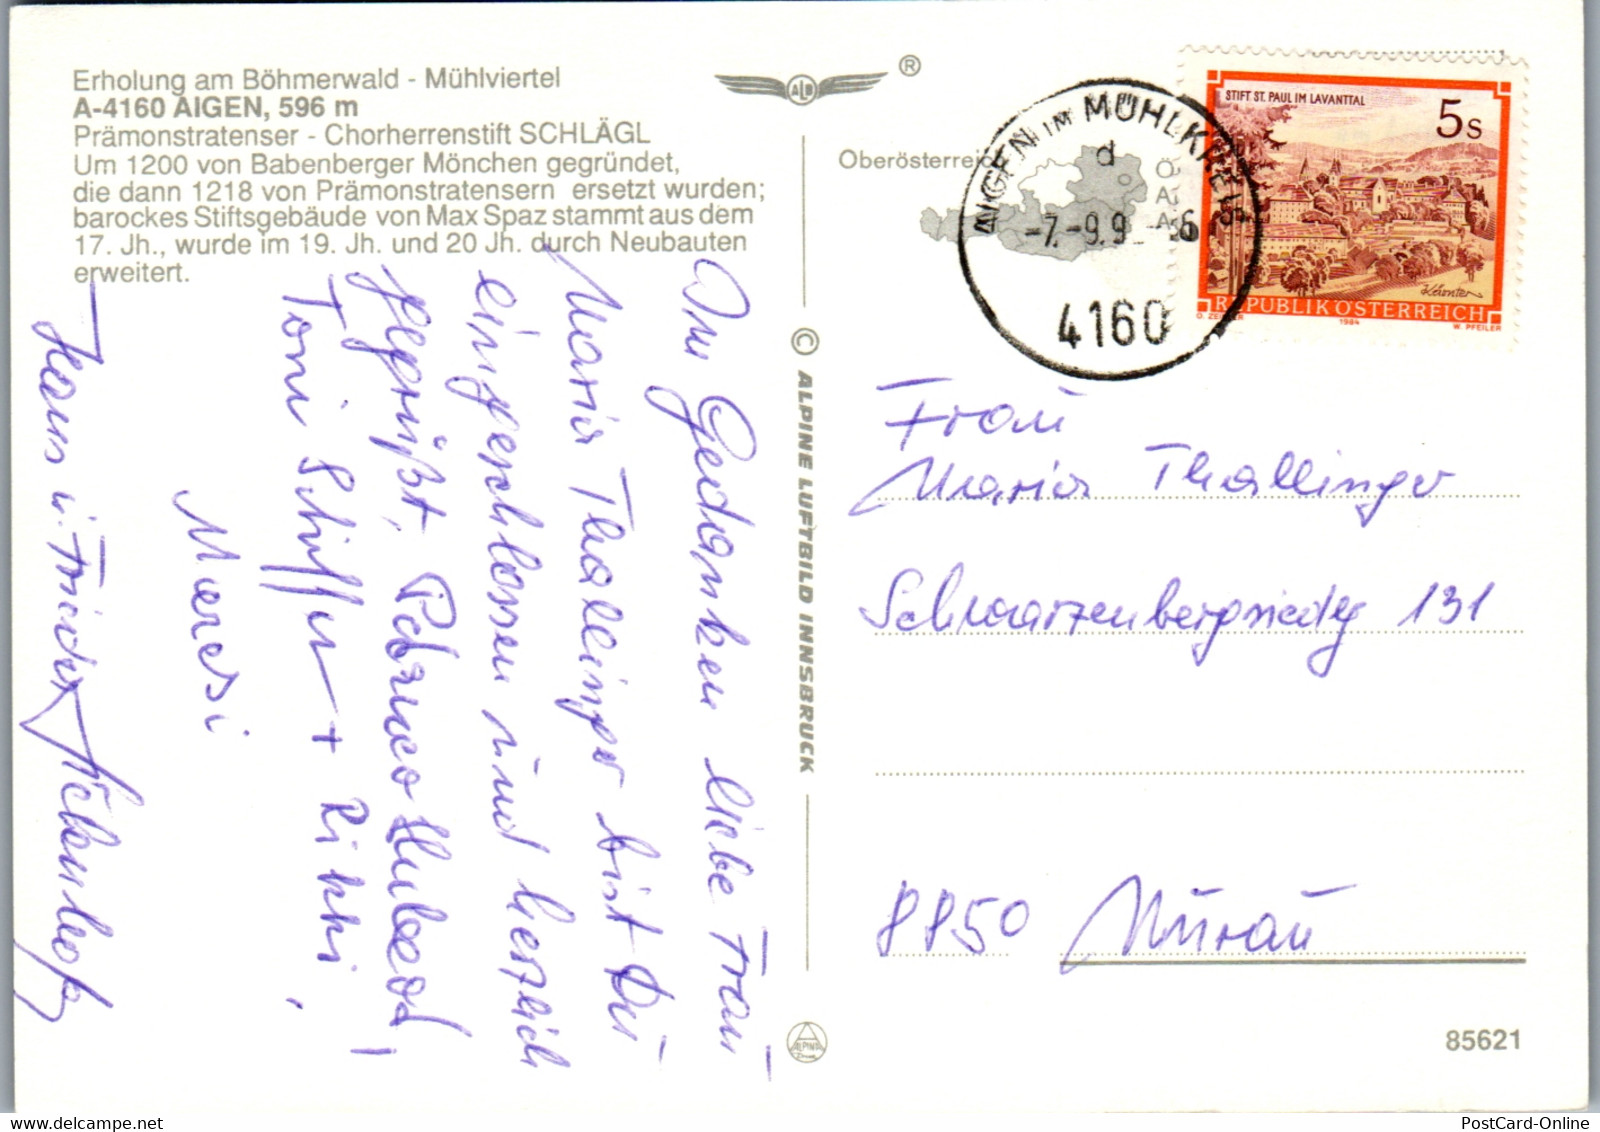 Erholung am Böhmerwald - Mühlviertel
A-4160 AIGEN, 596 m
Prämonstratenser - Chorherrenstift SCHLÄGL
Um 1200 von Babenberger Mönchen gegründet,
die dann 1218 von Prämonstratensern ersetzt wurden;
barockes Stiftsgebäude von Max Spaz stammt aus dem
17. Jh., wurde im 19. Jh. und 20 Jh. durch Neubauten
erweitert.
ALB
®
Oberösterreich
AIGEN IM MÜHLKREIS
d
-7.-9.9 -6
4160
STIFT ST. PAUL IM LAVANTTAL
5s
REPUBLIK ÖSTERREICH
O. ZEILLER 1984 W. PFEILER
In Gedanken liebe Frau
Maria Thallinger bist Du
eingeschlossen und herzlich
gegrüßt,
Toni + Rikki,
Maresi
Hans u.
© ALPINE LUFTBILD INNSBRUCK
Frau
Maria Thallinger
Schwarzenbergsiedlg 131
8850 Murau
ALPINE
85621
PostCard-Online